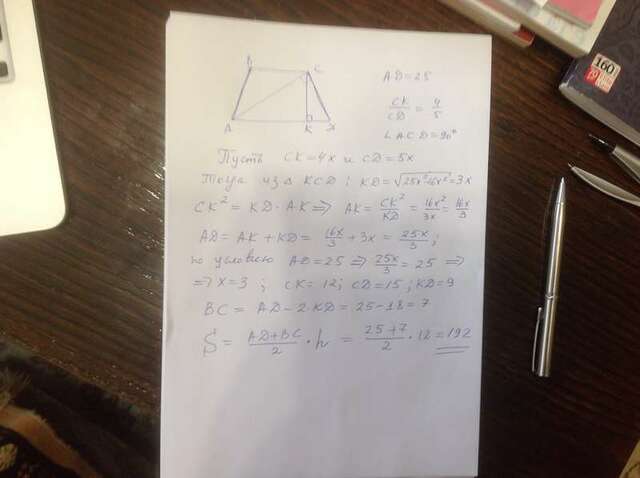 B
C
A
K
D
AD=25
CK/CD = 4/5
∠ACD=90°
Пусть CK=4x и CD=5x
Тогда из △ KCD: KD=√25x²-16x²=3x
CK²= KD·AK ⟹ AK= CK²/KD = 16x²/3x = 16x/3
AD= AK+KD= 16x/3 +3x= 25x/3;
по условию AD=25 ⟹ 25x/3 = 25 ⟹
⟹ x=3; CK=12; CD=15; KD=9
BC= AD-2·KD= 25-18=7
S= AD+BC/2 · h = 25+7/2 ·12=192
160